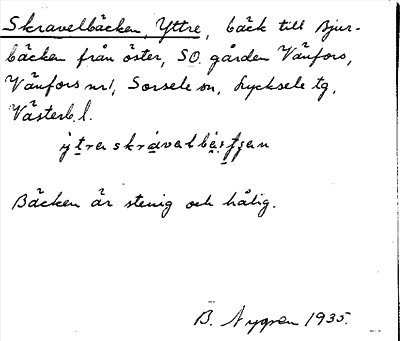 Skravelbäcken, Yttre, bäck till Bjur-
bäcken från öster, SO. gården Vänfors,
Vänfors nr 1, Sorsele sn, Lycksele tg,
Västerb. l.
Bäcken är stenig och hålig.
B. Nygren 1935.